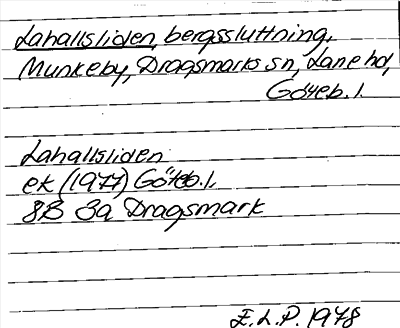 Lahallsliden, bergssluttning,
Munkeby, Dragsmarks sn, Lane hd,
Göteb. l.
Lahallsliden
ek (1977) Göteb. l,
8B 3a Dragsmark
E. L. P. 1978